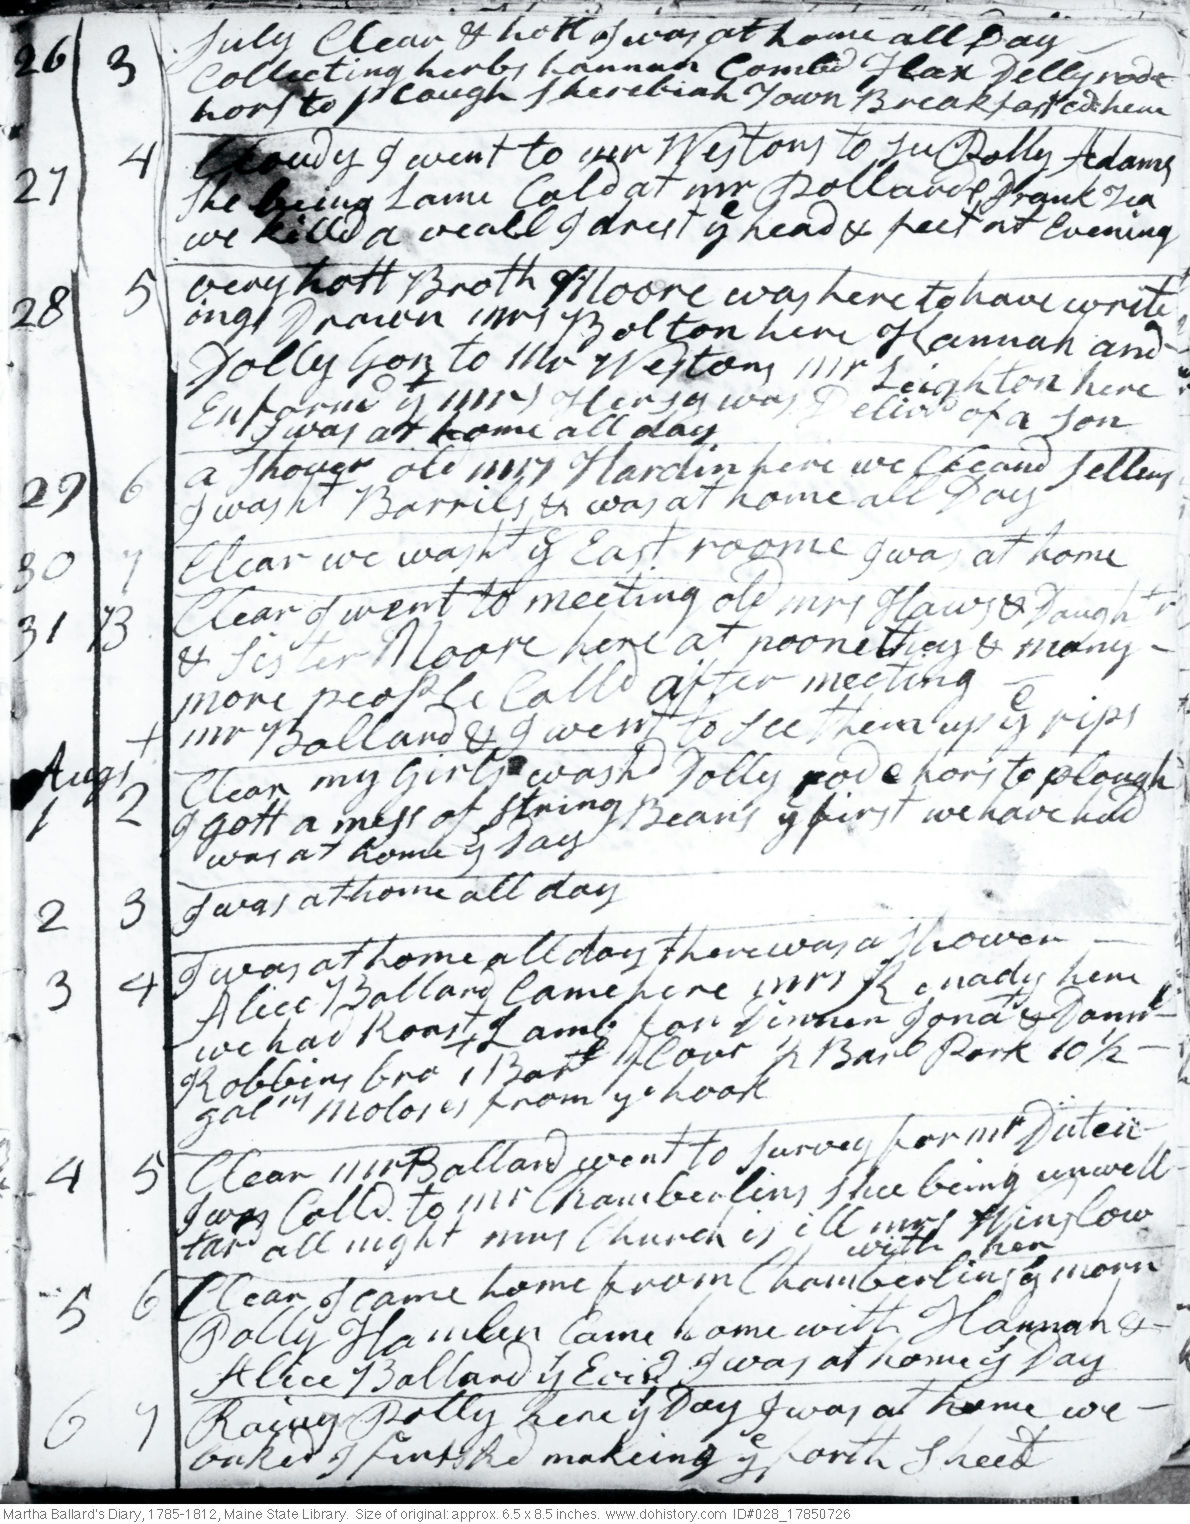 July Clear & hott I was at home all Day
26 3 Collecting herbs hannah Combd Flax Dolly rode
hors to plough Sherebiah Town Breakfasted here
27 4 Cloudy I went to mr Westons to see Polly Adams
She being Lame Calld at mr Pollards, Drank Tea
we killd a veall I drest ye head & feet at Evening
28 5 very hott Broth Moore was here to have write
ings Drawn mrs Bolton here Hannah and
Dolly Gon to Mr Westons mr Leighton here
Enformd yt mrs Hersy was Delivd of a Son
I was at home all day
29 6 a shouer old mrs Hardin here we Cleand Sellers
I washt Barrils & was at home all Day
30 7 Clear we washt ye East roome I was at home
31 B Clear I went to meeting old mrs Haws & Daught r
& Sister Moore here at noone they & many
more people Calld after meeting
mr Ballard & I went to see them up ye rips
Augst
1 2 Clear my Girls washd Dolly rode hors to plough
I gott a mess of String Beans ye first we have had
was at home ye Day
2 3 I was at home all day
3 4 I was at home all day there was a shower
Alice Ballard Came here mrs Kenady here
we had Roast Lamb for Dinner Jona & Danl
Robbins bro 1 Bart flour 1/2 Barl Pork 10 1/2
galns moloses from ye hook
4 5 Clear mr Ballard went to survey for mr Duten
I was Calld to mr Chamberlins shee being unwell
tard all night mrs Church is ill mrs Winslow
with her
5 6 Clear I came home from Chamberlins ye morn
Polly Hamlen Came home with Hannah &
Alice Ballard ye Evng I was at home ye Day
6 7 Rainy Polly here ye Day I was at home we
baked I finisht makeing ye forth Sheet
Martha Ballard's Diary, 1785-1812, Maine State Library. Size of original: approx. 6.5 x 8.5 inches. www.dohistory.com ID#028_17850726